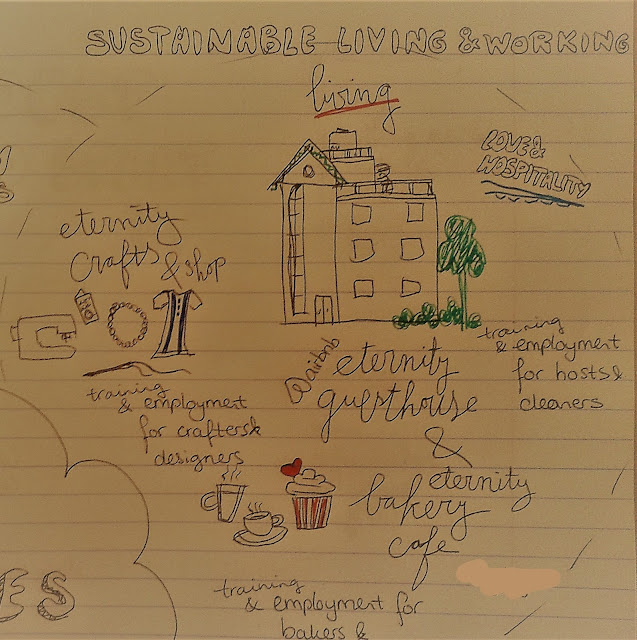 SUSTAINABLE LIVING & WORKING
living
LOVE &
HOSPITALITY
eternity
Crafts
& shop
training
& employment
for crafters &
designers
@airbnb
eternity
guesthouse
&
eternity
bakery
cafe
training
& employment
for hosts &
cleaners
training
& employment for
bakers &
ES